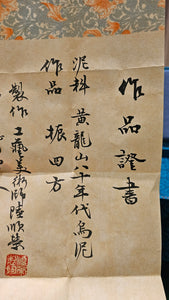 作品證書
泥料 黃龍山八十年代烏泥
作品 振四方
製作 工藝美術師陸順榮